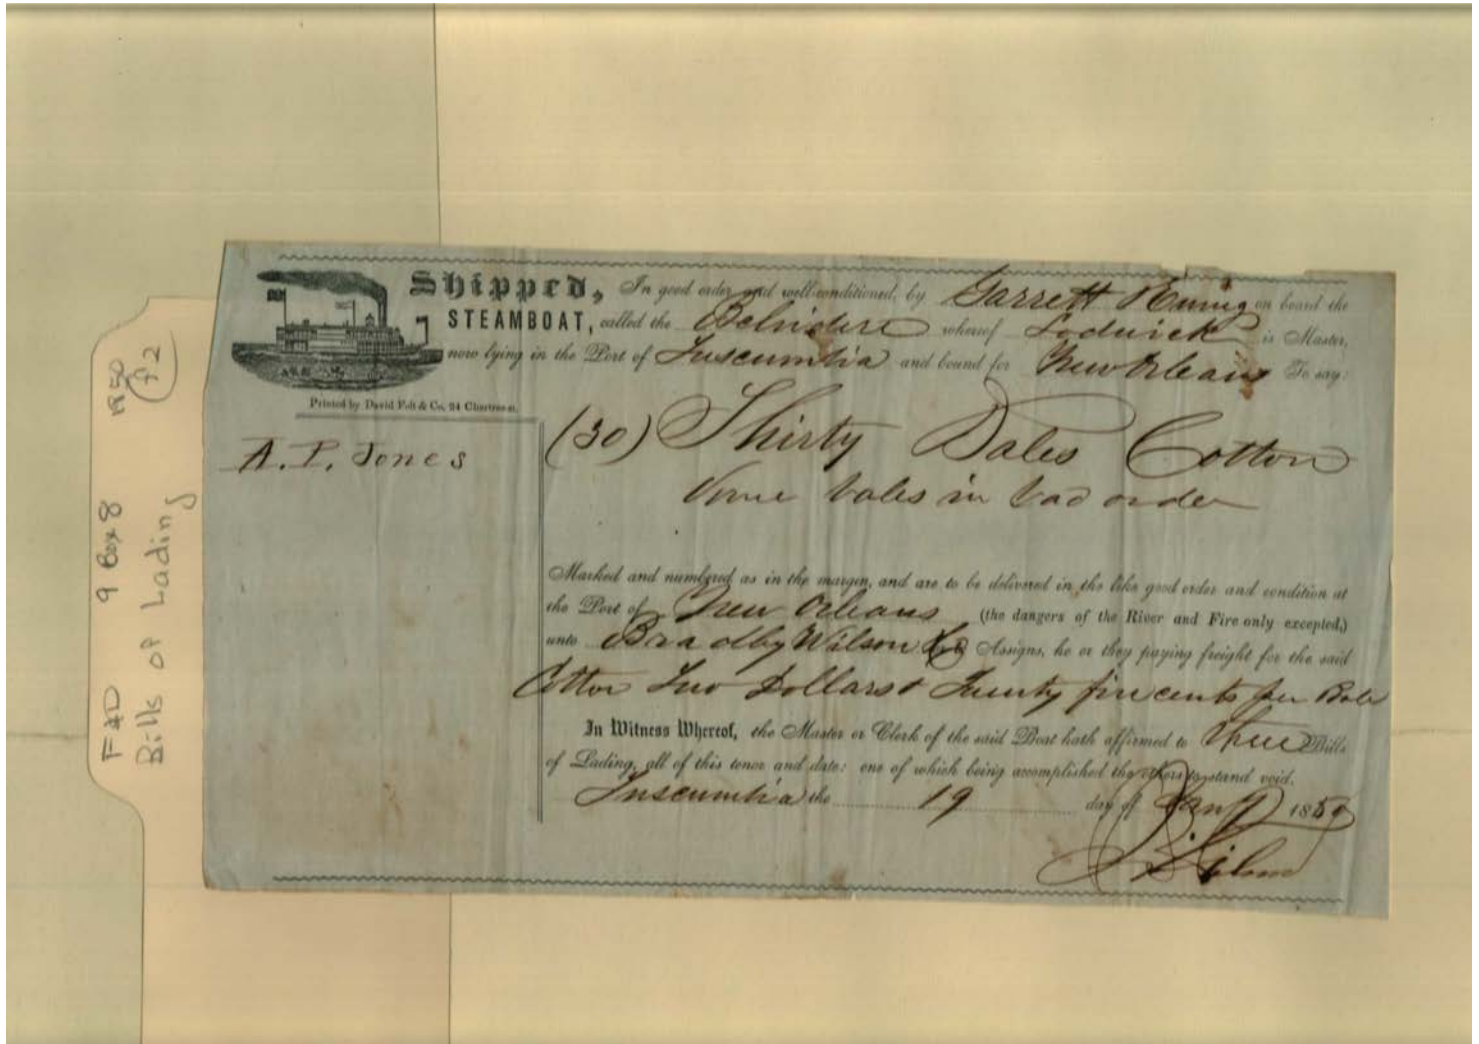 Shipped, In good order and well-conditioned, by Garrett on board the
STEAMBOAT, called the Belvidere whereof Lodwick is Master,
now lying in the Port of Tuscumbia and bound for New Orleans To say:
Printed by David Felt & Co. 24 Chartres-st.
A. P. Jones
(30) Thirty Bales Cotton
Some bales in bad order
Marked and numbered as in the margin, and are to be delivered in the like good order and condition at
the Port of New Orleans (the dangers of the River and Fire only excepted,)
unto Bradby Wilson & Co Assigns, he or they paying freight for the said
Cotton Two Dollars & Twenty five cents per Bale
In Witness Whereof, the Master or Clerk of the said Boat hath affirmed to three Bills
of Lading, all of this tenor and date: one of which being accomplished the others to stand void.
Tuscumbia the 19 day of Jany 1850
F&D 9 Box 8 1850
Bills of Lading f2